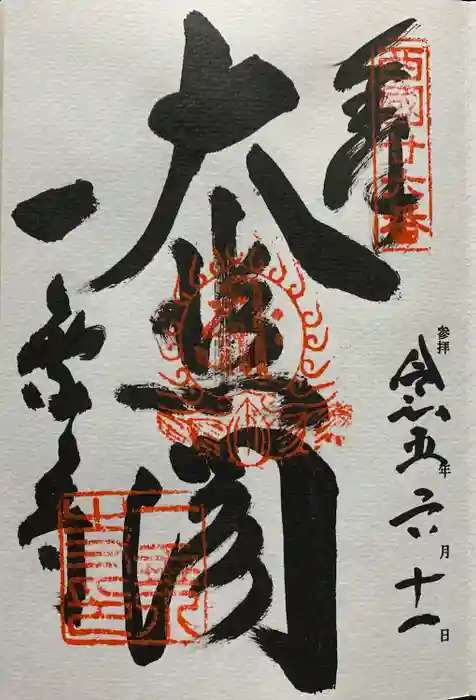 奉拝
西國廿六番
参拝
令和五年六月十一日
大悲閣
一乗寺